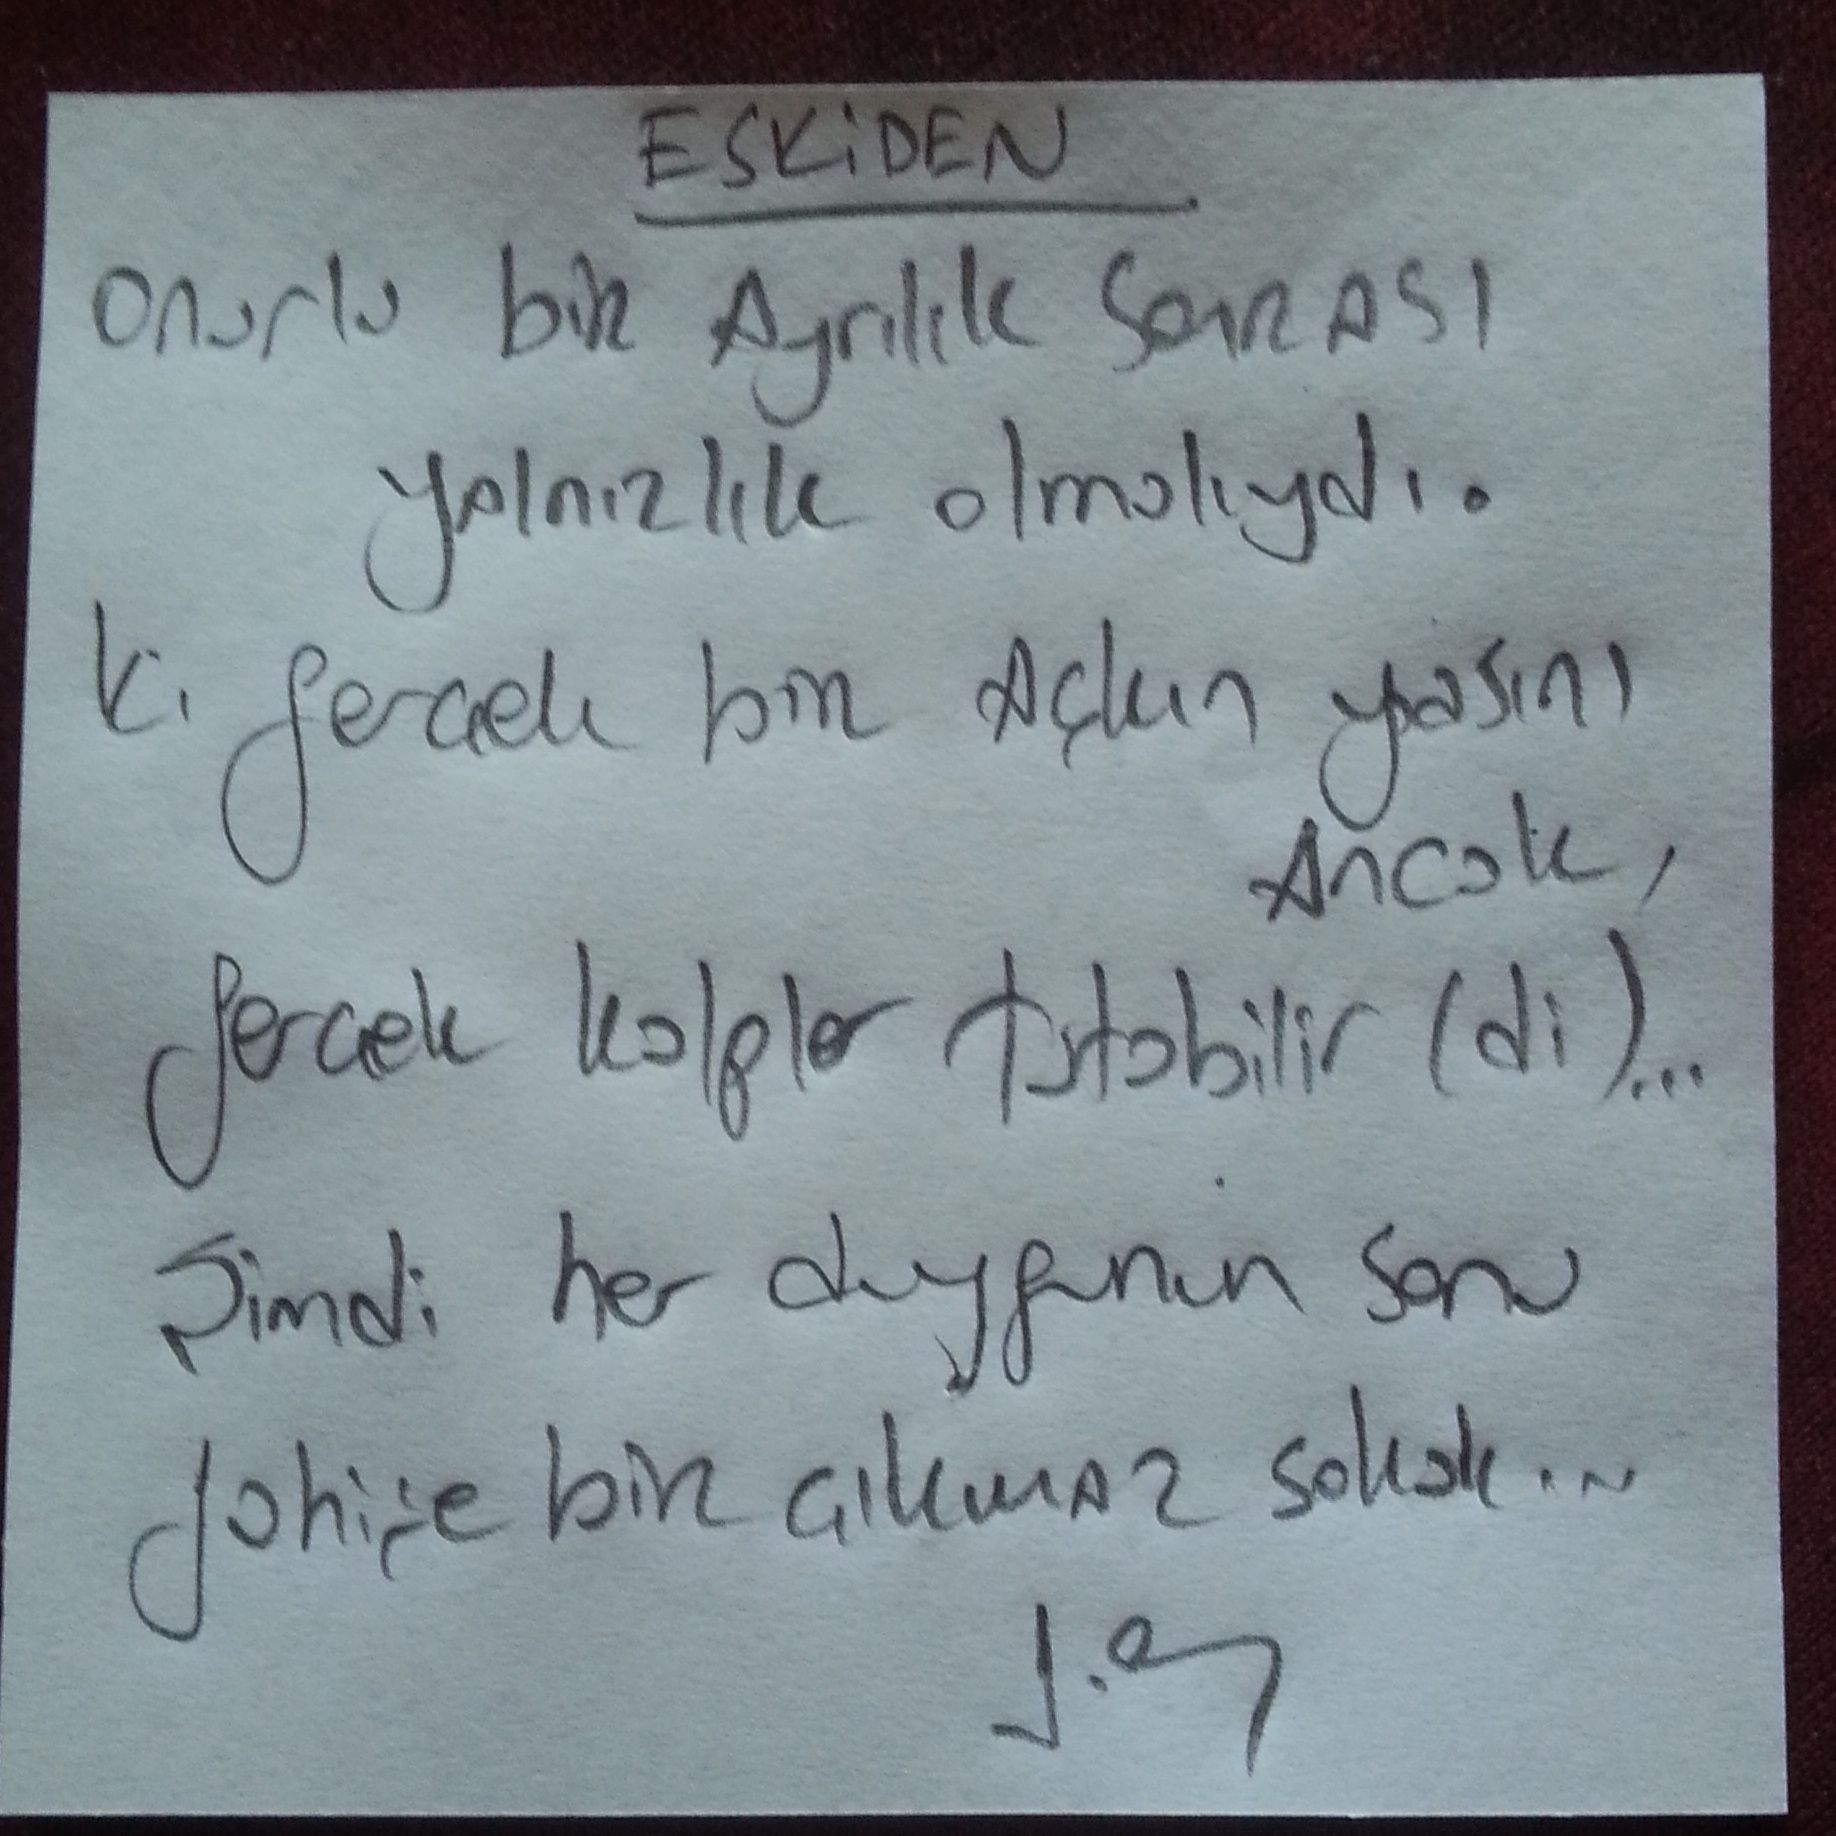 ESKiDEN
Onurlu bir Ayrılık SonrASI
yalnızlık olmalıydı.
ki gerçek bir Aşkın yasını
Ancak,
gerçek kalpler tutabilir (di)...
Şimdi her duygunun sonu
fahişe bir çıkmaz sokak...